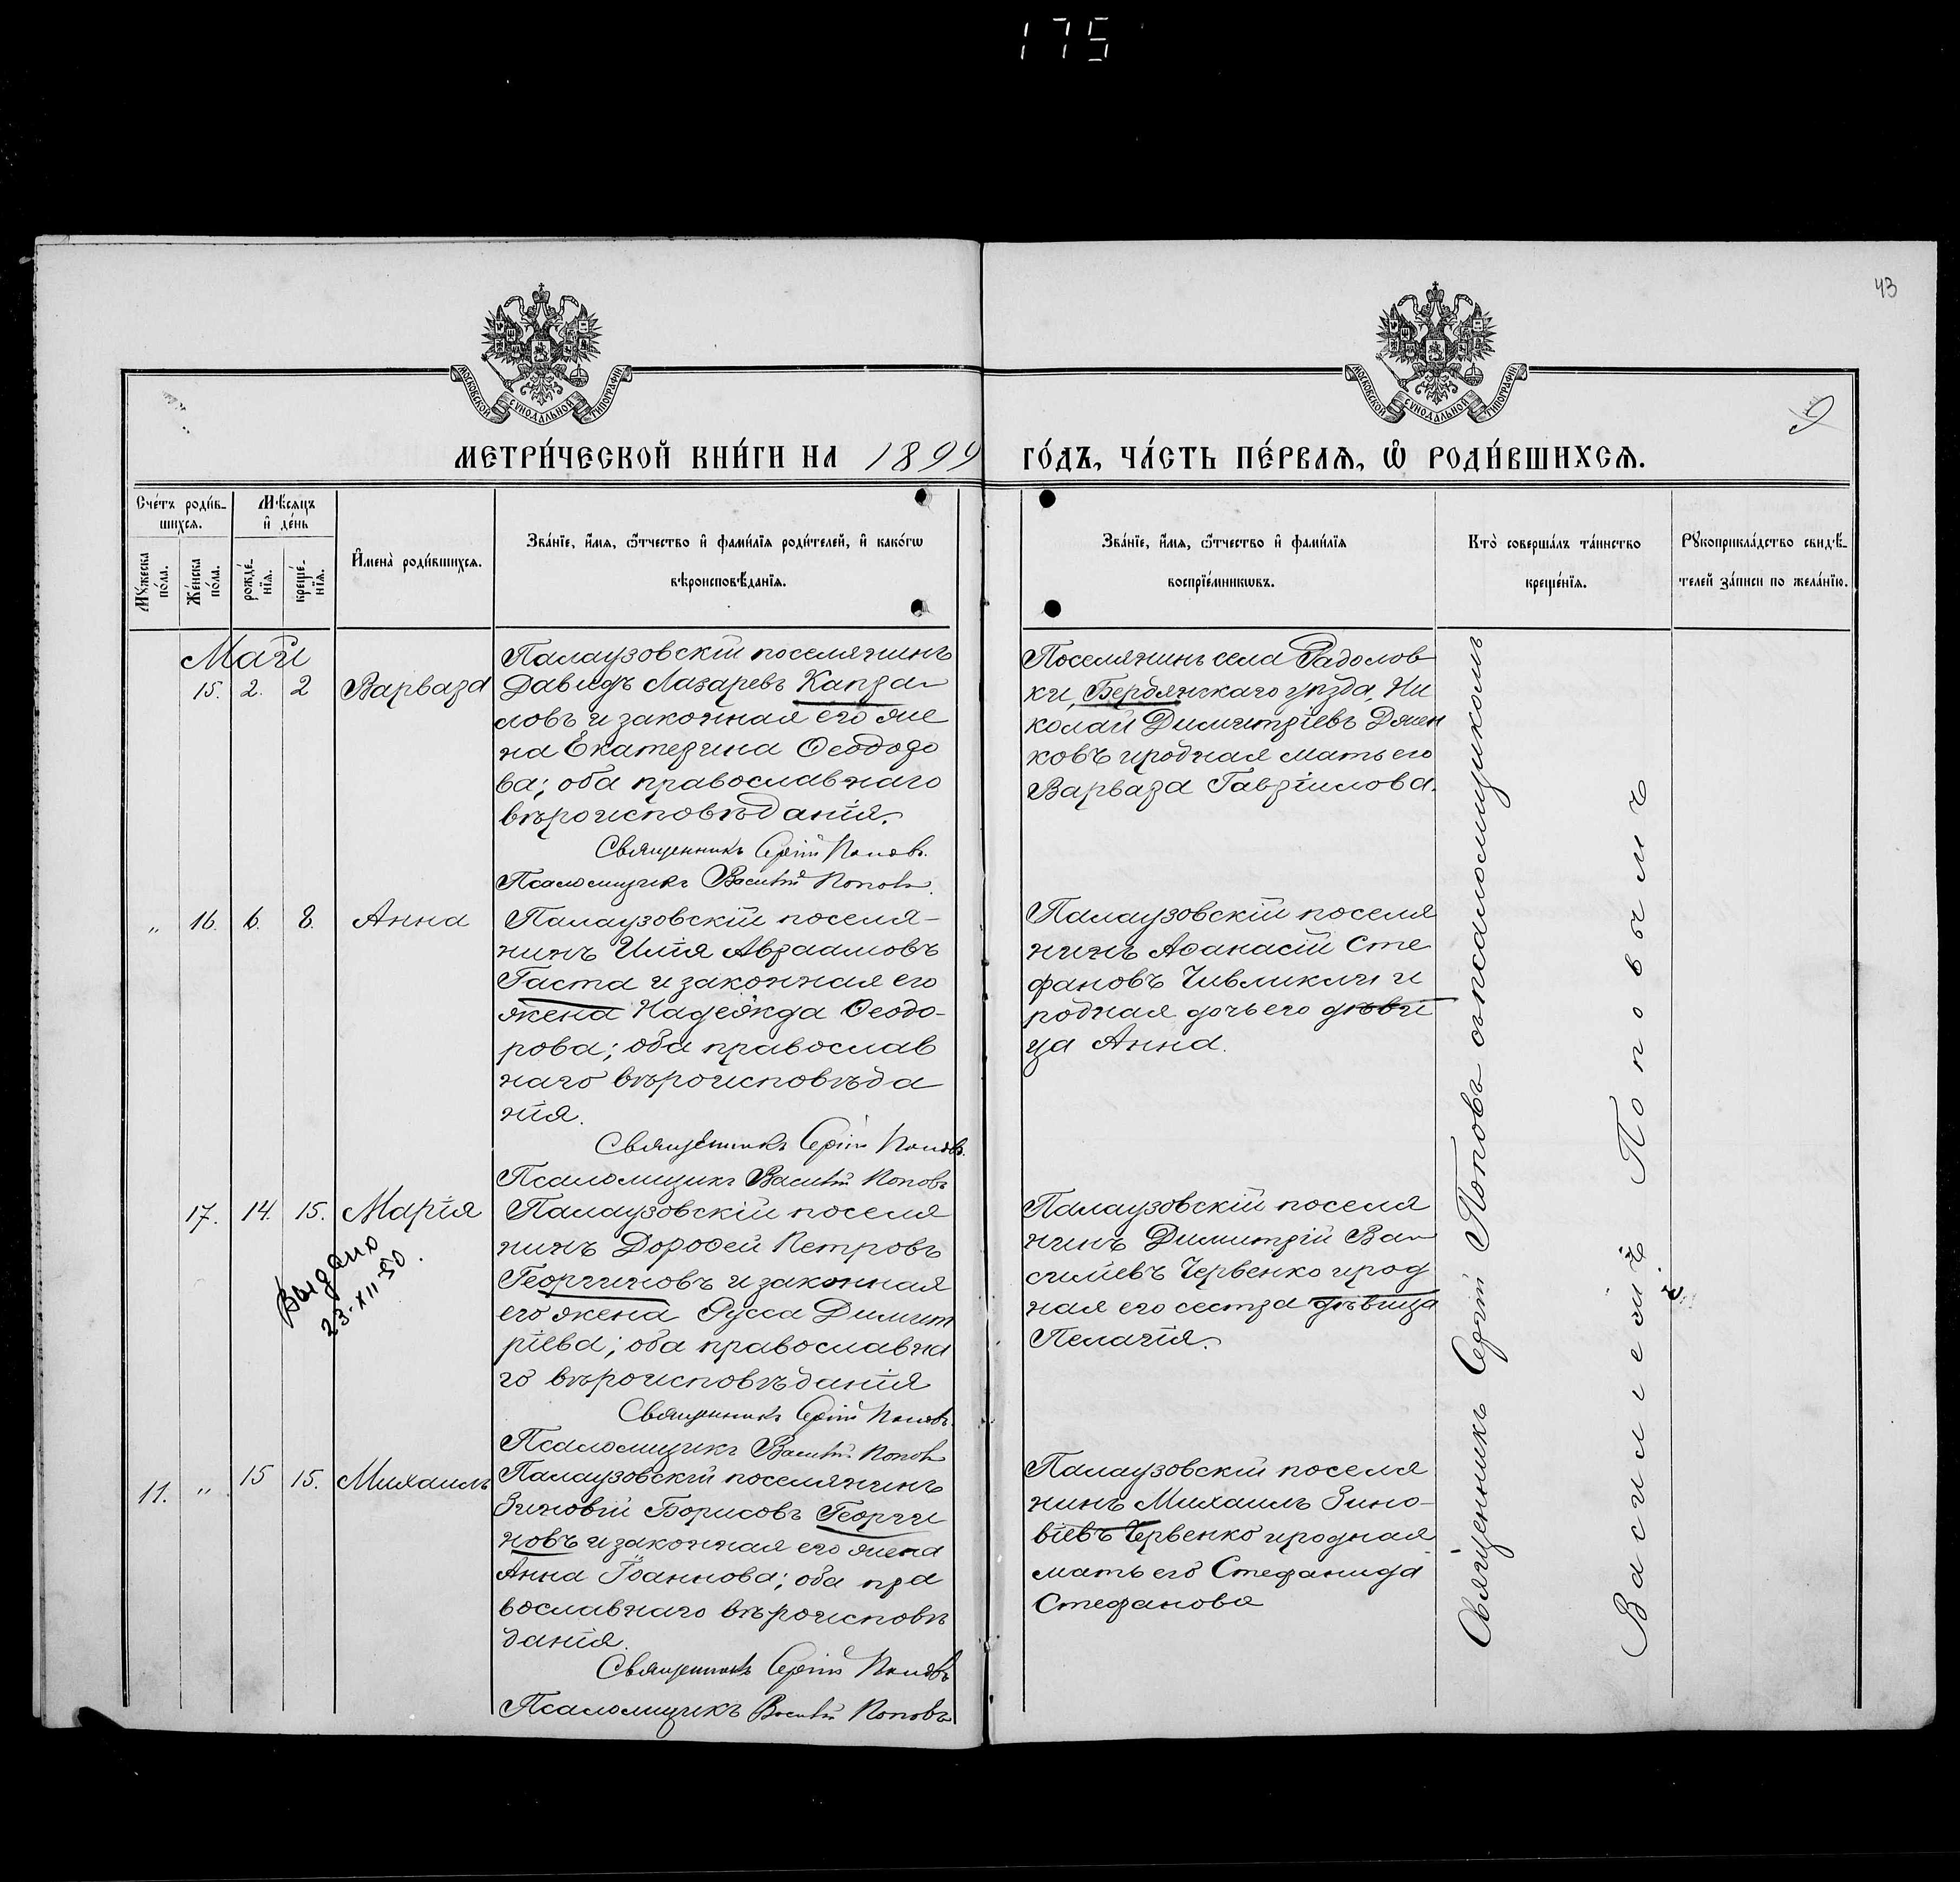 175
43
9
МОСКОВСКОЙ СѴНОДАЛЬНОЙ ТИПОГРАФІИ
МОСКОВСКОЙ СѴНОДАЛЬНОЙ ТИПОГРАФІИ
МЕТРИ́ЧЕСКОЙ КНИ́ГИ НА 1899 ГО́ДЪ, ЧА́СТЬ ПЕ́РВАѦ, Ѡ РОДИ́ВШИХСѦ.
Сче́тъ роди́в-
шихсѧ.
Мѣ́сѧцъ
и҆ де́нь
Мꙋ́жеска
по́ла.
Же́нска
по́ла.
рожде́-
нїѧ.
креще́-
нїѧ.
И҆мена̀ роди́вшихсѧ.
Зва́нїе, и҆́мѧ, ѻ҆́тчество и҆ фами́лїѧ роди́телей, и҆ како́гѡ
вѣроисповѣ́данїѧ.
Зва́нїе, и҆́мѧ, ѻ҆́тчество и҆ фами́лїѧ
воспрїе́мникѡвъ.
Кто̀ соверша́лъ та́инство
креще́нїѧ.
Рꙋкоприкла́дство свидѣ́-
телей за́писи по жела́нїю.
Май
15. 2. 2 Варвара
Палаузовскій поселянинъ
Давидъ Лазаревъ Капза-
ловъ и законная его же
на Екатерина Ѳеодоро
ва; оба православнаго
вѣроисповѣданія.
Священникъ Сергій Поповъ.
Псаломщикъ Василій Поповъ.
Поселянинъ села Радолов
ки, Бердянскаго уѣзда, Ни
колай Димитріевъ Дмен
ковъ и родная мать его
Варвара Гавріилова.
„ 16. 6. 8. Анна
Палаузовскій поселя-
нинъ Илія Авраамовъ
Гаста и законная его
жена Надежда Ѳеодо-
рова; оба православ
наго вѣроисповѣда
нія.
Священникъ Сергій Поповъ.
Псаломщикъ Василій Поповъ
Палаузовскій поселя
нинъ Аѳанасій Сте
фановъ Чивликли и
родная дочь его дѣви
ца Анна.
17. 14. 15. Марія
Выдано
23.XII-50.
Палаузовскій поселя
нинъ Дороѳей Петровъ
Георгиновъ и законная
его жена Русса Димит
ріева; оба православна
го вѣроисповѣданія
Священникъ Сергій Поповъ.
Псаломщикъ Василій Поповъ
Палаузовскій поселя
нинъ Димитрій Ва-
силіевъ Червенко и род
ная его сестра дѣвица
Пелагія.
11. „ 15 15. Михаилъ
Палаузовскій поселянинъ
Зиновій Борисовъ Георги
новъ и законная его жена
Анна Іоаннова; оба пра
вославнаго вѣроисповѣ
данія.
Священникъ Сергій Поповъ
Псаломщикъ Василій Поповъ
Палаузовскій поселя
нинъ Михаилъ Зино-
віевъ Червенко и родная
мать его Стефанида
Стефанова
Священникъ Сергій Поповъ съ псаломщикомъ
Василіемъ Поповымъ